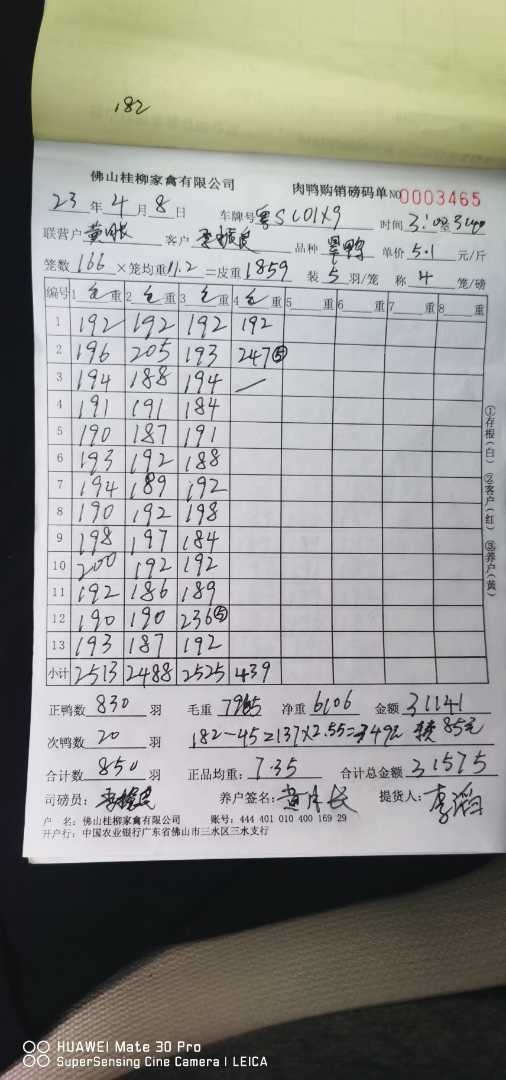 182
佛山桂柳家禽有限公司 肉鸭购销磅码单 NO 0003465
23 年 4 月 8 日 车牌号 粤SL01X9 时间 3:00至3:40
联营户 客户 品种 单价 5.1 元/斤
笼数 166 ×笼均重 11.2 =皮重 1859 装 5 羽/笼 称 4 笼/磅
编号 1 毛 重 2 毛 重 3 毛 重 4 毛 重 5 重 6 重 7 重 8 重
1 192 192 192 192
2 196 205 193 247⑤
3 194 188 194 —
4 191 191 184
5 190 187 191
6 193 192 188
7 194 189 192
8 190 192 198
9 198 197 184
10 200 192 192
11 192 186 189
12 190 190 236⑤
13 193 187 192
小计 2513 2488 2525 439
正鸭数 830 羽 毛重 7965 净重 6106 金额 31141
次鸭数 20 羽 182-45=137×2.55=349元 85元
合计数 850 羽 正品均重: 7.35 合计总金额 31575
司磅员: 养户签名: 黄月长 提货人: 李滔
户 名: 佛山桂柳家禽有限公司 账号: 444 401 010 400 169 29
开户行: 中国农业银行广东省佛山市三水区三水支行
①存根(白) ②客户(红) ③养户(黄)
HUAWEI Mate 30 Pro
SuperSensing Cine Camera | LEICA